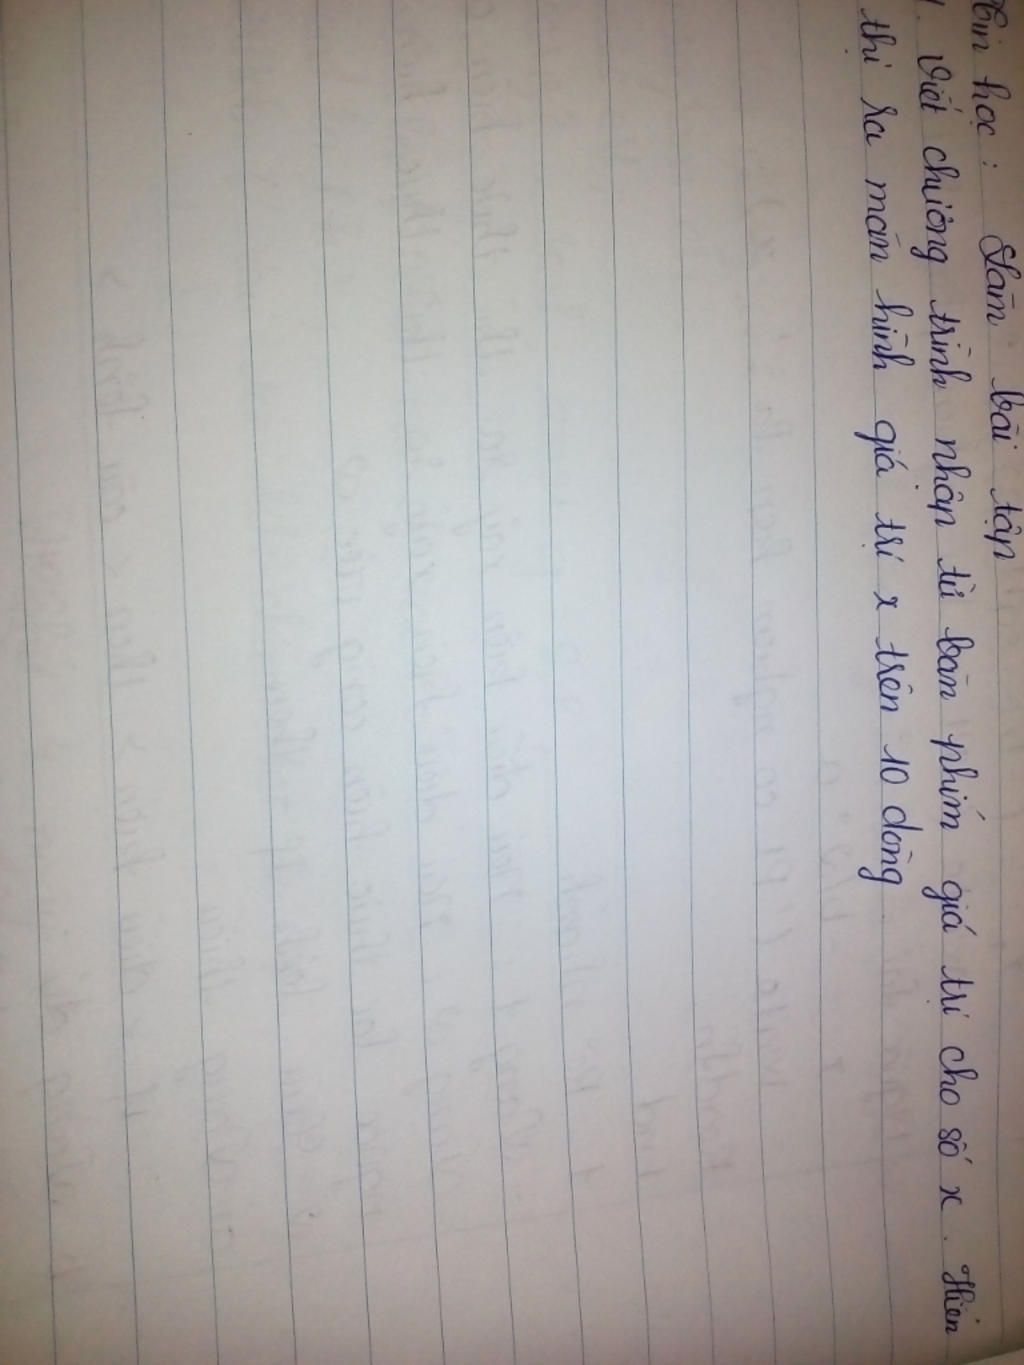 Tin học: Làm bài tập
1. Viết chương trình nhập từ bàn phím giá trị cho số x. Hiển
thị ra màn hình giá trị x trên 10 dòng